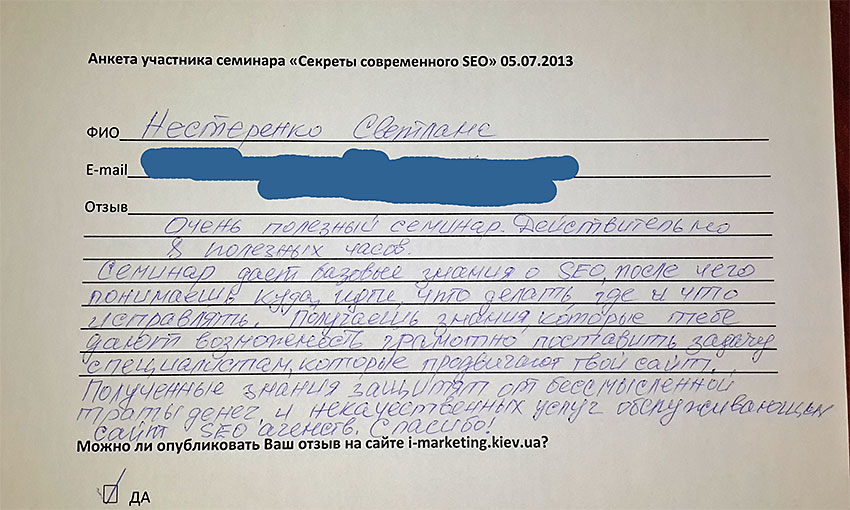 Анкета участника семинара «Секреты современного SEO» 05.07.2013
ФИО Нестеренко Светлана
E-mail
Отзыв
Очень полезный семинар. Действительно
8 полезных часов.
Семинар дает базовые знания о SEO, после чего
понимаешь куда идти, что делать, где и что
исправлять. Получаешь знания, которые тебе
дают возможность грамотно поставить задачу
специалистам, которые продвигают твой сайт.
Полученные знания защитят от бессмысленной
траты денег и некачественных услуг обслуживающих
сайт SEO агенств. Спасибо!
Можно ли опубликовать Ваш отзыв на сайте i-marketing.kiev.ua?
ДА